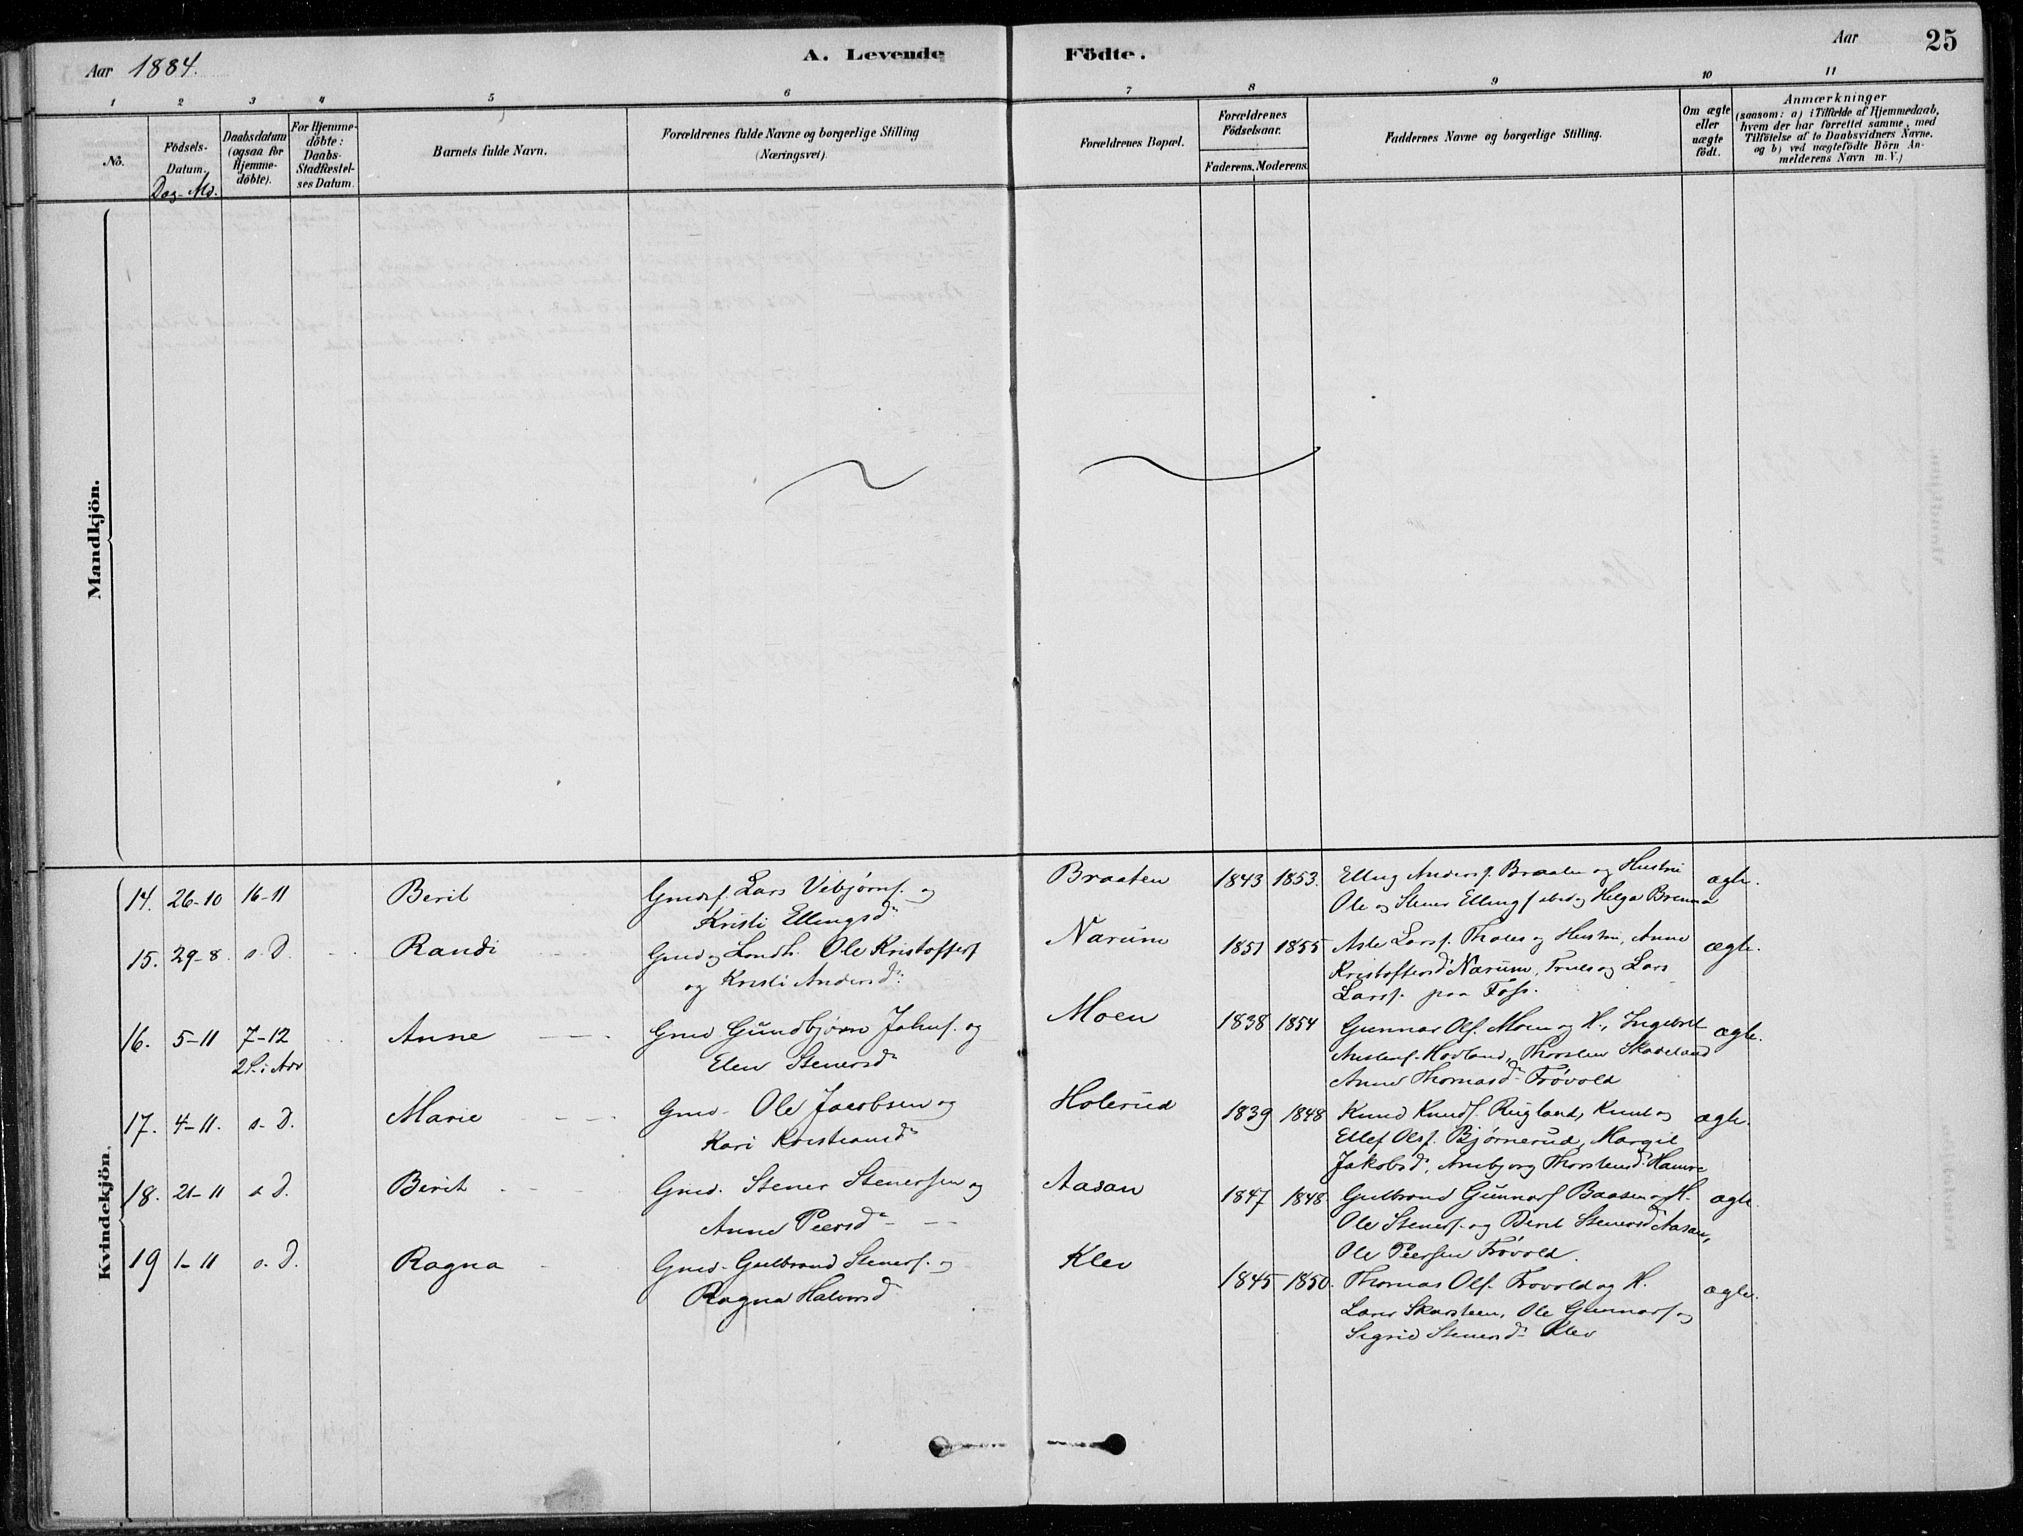 Aar 1884. A. Levende Födte. Aar 25
1 2 3 4 5 6 7 8 9 10 11
Nô.
Födsels-
Datum.
Dag. Md.
Daabsdatum
(ogsaa for
Hjemme-
döbte).
For Hjemme-
döbte:
Daabs-
Stadfestel-
ses Datum.
Barnets fulde Navn.
Forældrenes fulde Navne og borgerlige Stilling
(Næringsvei).
Forældrenes Bopæl.
Forældrenes
Födselsaar.
Faderens. Moderens.
Faddernes Navne og borgerlige Stilling.
Om ægte
eller
uægte
födt.
Anmærkninger
(saasom: a) i Tilfælde af Hjemmedaab,
hvem der har forrettet samme, med
Tilföielse af to Daabsvidners Navne.
og b) ved uægtefödte Börn An-
melderens Navn m. V.)
Mandkjön.
Kvindekjön.
14. 26-10 16-11 Berit
Lars Vebjörns. og
Kristi Ellingsd.
Braaten 1843 1853.
Elling Anders. Braaten og Hustru
Ole og Stener Ellings. ibid og Helga Brenna
ægte.
15. 29-8. s. D. Randi
Gmd og Londh. Ole Kristoffers.
og Kristi Andersd.
Narum 1851 1855
Asle Larss. Thoen og Hustru, Anne
Kristoffersd. Narum, Truls og Lars
Larss. paa Foss.
ægte.
16. 5-11 7-12
2 S. i Adv
Anne
Gmd Gundbjörn Johns. og
Elen Stenersd.
Moen 1838 1854
Gunnar Ols. Moen og H., Ingebret
Austens. Hovland, Thorsten Skadeland
Anne Thomasd. Frövold
ægte.
17. 4-11. s. D. Marie
Gmd. Ole Jacobsen og
Kari Kristiansd.
Holerud 1839 1848
Knud Knuds. Rugland, Knut og
Ellef Ols. Björnerud, Margit
Jakobsd., Anbjorg Thorstensd. Hamre
ægte.
18. 21-11 s D. Berit
Gmd. Stener Stenersen og
Anne Peersd.
Aasan 1847 1848
Gulbrand Gunnars. Baasen og H.
Ole Steners. og Berit Stenersd. Aasan,
Ole Peersen Frövold.
ægte.
19 1-11 s. D. Ragna
Gmd. Gulbrand Steners. og
Ragna Halvorsd
Klev 1845 1850.
Thomas Ols. Frovold og H.
Lars Skarsteen, Ole Gunnars. og
Sigrid Stenersd. Klev
ægte.